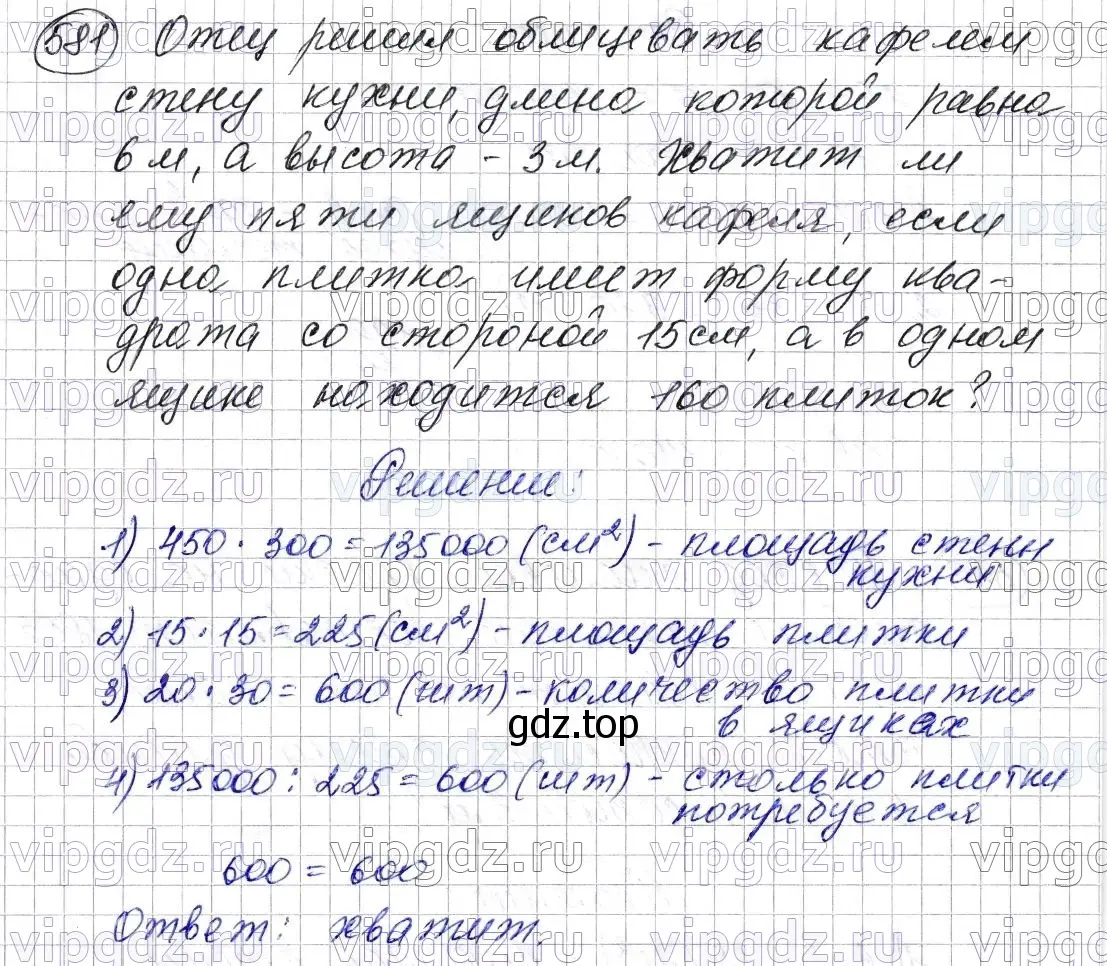 581 Отец решил облицевать кафелем
стену кухни, длина которой равна
6 м, а высота - 3 м. Хватит ли
ему пяти ящиков кафеля, если
одна плитка имеет форму ква-
драта со стороной 15 см, а в одном
ящике находится 160 плиток?
Решение:
1) 450 · 300 = 135000 (см²) - площадь стены
кухни
2) 15 · 15 = 225 (см²) - площадь плитки
3) 20 · 30 = 600 (шт) - количество плитки
в ящиках
gdz.top
4) 135000 : 225 = 600 (шт) - столько плитки
потребуется
600 = 600
Ответ: хватит.
vipgdz.ru